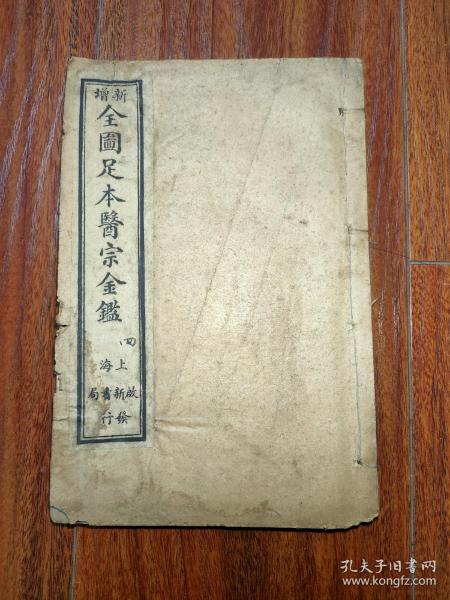 新增
全圖足本醫宗金鑑
四
上海
啟新書局
發行
孔夫子旧书网
www.kongfz.com